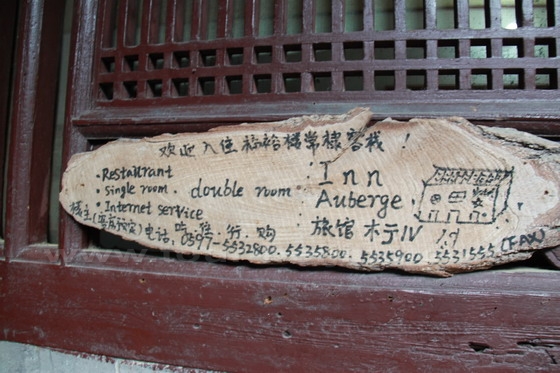 欢迎入住福裕楼常棣客栈！
• Restaurant
• Single room. double room
• Internet service
Inn
Auberge
旅馆 ホテル
吃.住.行.购
栈主 电话：0597-5532800. 5535800. 5535900 5531555 (FAX)